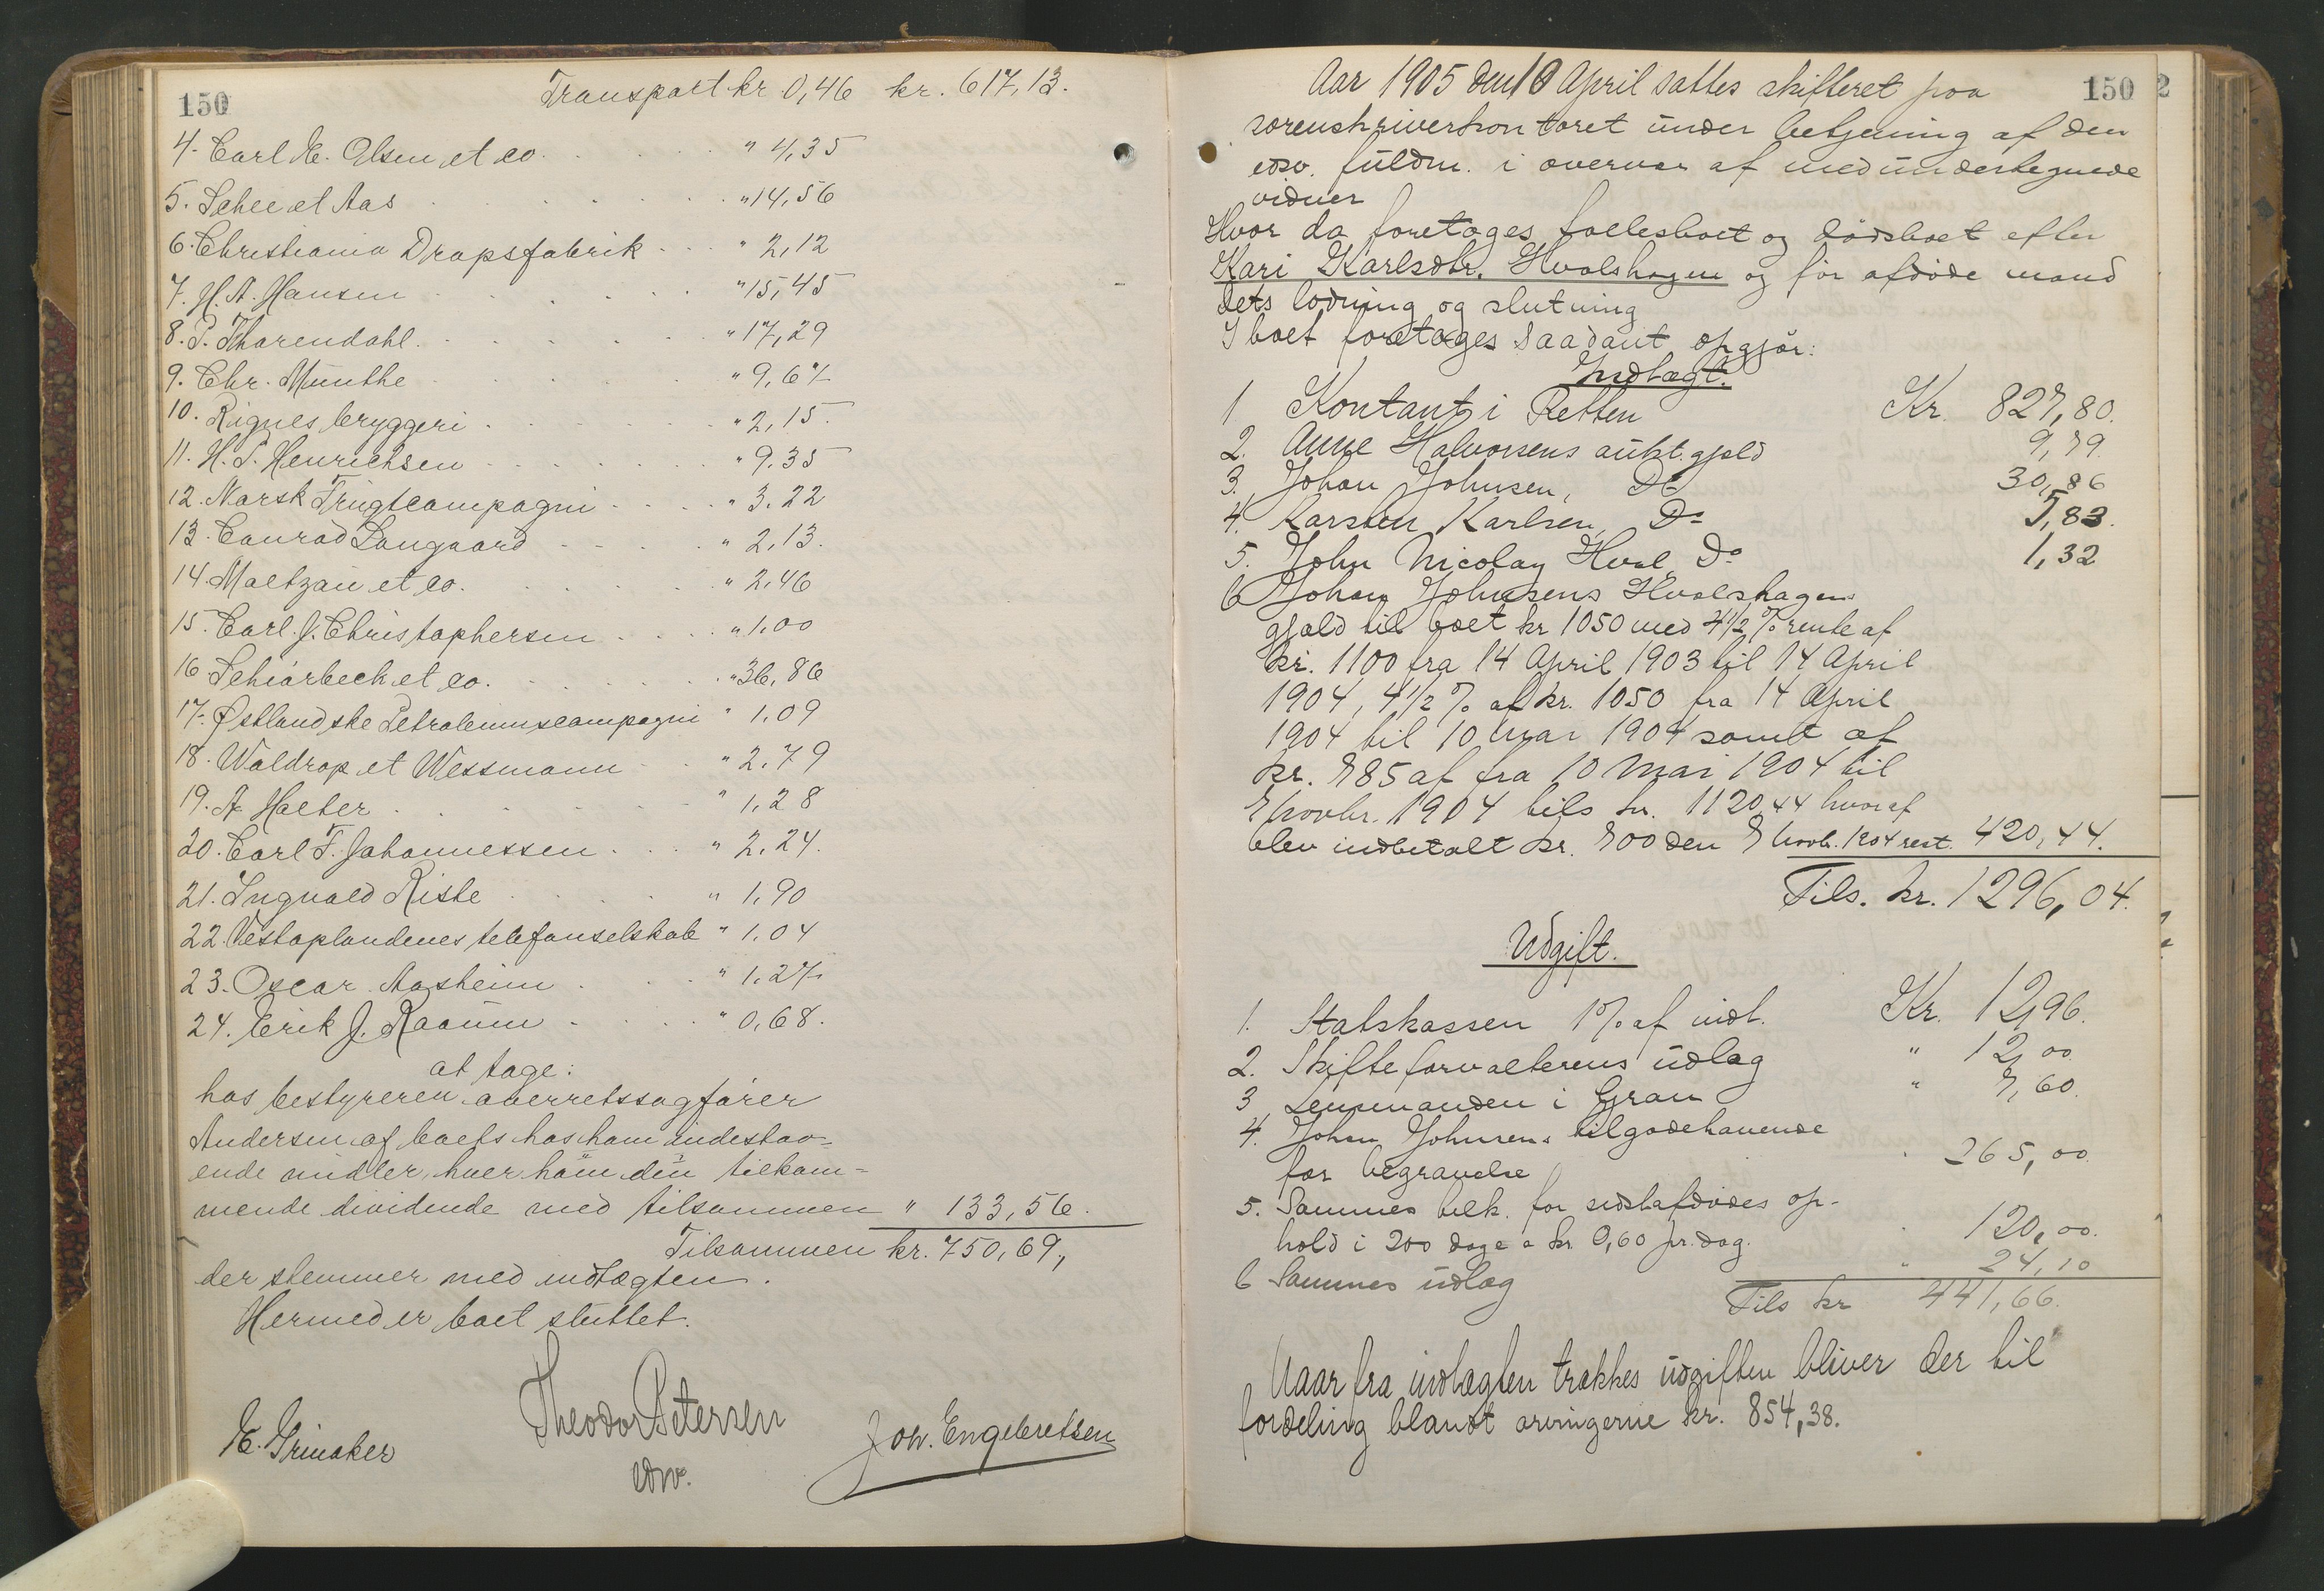 150
Transport kr. 0,46 kr. 617,13.
4. Carl E. Olsen et co. " 4,35
5. Schee et Aas " 14,56
6. Christiania Dropsfabrik " 2,12
7. H. A. Hansen " 15,45
8. P. Tharendahl. " 17,29
9. Chr. Munthe " 9,67
10. Rignes bryggeri " 2,15.
11. H. S. Henrichsen " 9.35
12. Norsk Frugtcompagni " 3.22
13. Conrad Langaard " 2,13.
14 Maltzau et co. " 2,46
15. Carl J. Christophersen " 1.00
16 Schiørbeck et co. " 36,86
17. Østlandske Petroleumscompagni " 1,09
18. Waldrop et Wessmann " 2.79
19. A. Holter " 1,28
20. Carl F. Johannessen " 2,24.
21. Ingvald Riste " 1,90
22. Vestoplandenes telefonselskab " 1,04
23. Oscar Aasheim " 1,27
24. Erik J. Raaum " 0,68.
at tage:
hos bestyreren overretssagfører
Andersen af boets hos ham indestaa-
ende midler, hver ham den tilkom-
mende dividende med tilsammen " 133,56.
Tilsammen kr. 750,69,
der stemmer med indtægten.
Hermed er boet sluttet.
E. Grinaker
Theodor Petersen
edsv.
Joh. Engebretsen
150
Aar 1905 den 10 April sattes skifteret paa
sorenskriverkontoret under betjening af den
edsv. fuldm. i overvær af medundertegnede
vidner
Hvor da foretoges fællesboet og dødsboet efter
Kari Karlsdtr. Hvalshagen og før afdøde mand
dets lodning og slutning
I boet foretoges saadant opgjør:
Indtægt.
1 Kontant i Retten Kr 827,80.
2. Anne Halvorsens aukt.gjæld 9,79.
3. Johan Johnsen, Do 30,86
4. Karsten Karlsen, Do 5,83.
5. John Nicolay Hval, Do 1,32
6 Johan Johnsens Hvalshagen
gjæld til boet kr 1050 med 4 1/2 % rente af
kr. 1100 fra 14 April 1903 til 14 April
1904, 4 1/2 % af kr. 1050 fra 14 April
1904 til 10 mai 1904 samt af
kr. 785 af fra 10 Mai 1904 til
7 novbr. 1904 tils kr. 1120,44 hvoraf
blev indbetalt kr. 700 den 7 novb. 1904 rest. 420,44.
Tils. kr. 1296,04.
Udgift.
1. Statskassen 1% af indt. Kr. 12,96.
2. Skifteforvalterens udlæg " 12,00.
3 Lensmanden i Gran " 7,60.
4. Johan Johnsens tilgodehavende
for begravelse 265,00
5. Sammes tilk. for sidstafdødes op-
hold i 200 dage a kr. 0,60 pr. dag. 120,00.
6 Sammes udlæg " 24,10
Tils kr 441,66.
Naar fra indtægten trækkes udgiften bliver der til
fordeling blandt arvingerne kr. 854,38.